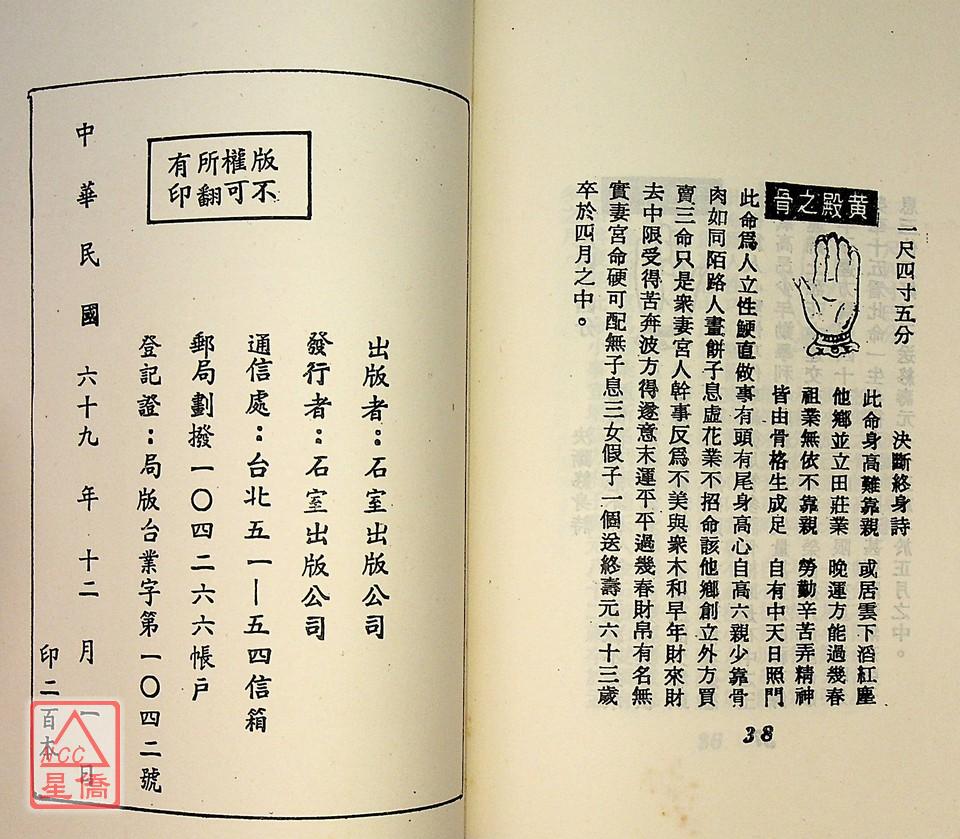 黄殿之骨
一尺四寸五分
決斷終身詩
此命身高難靠親　或居雲下滔紅塵
他鄉並立田莊業　晚運方能過幾春
祖業無依不靠親　勞勤辛苦弄精神
皆由骨格生成足　自有中天日照門
此命爲人立性鯁直做事有頭有尾身高心自高六親少靠骨
肉如同陌路人畫餅子息虛花業不招命該他鄉創立外方買
賣三命只是衆妻宮人幹事反爲不美與衆木和早年財來財
去中限受得苦奔波方得遂意末運平平過幾春財帛有名無
實妻宮命硬可配無子息三女假子一個送終壽元六十三歲
卒於四月之中。
38
版權所有
不可翻印
出版者：石室出版公司
發行者：石室出版公司
通信處：台北五一—五四信箱
郵局劃撥一〇四二六六帳戶
登記證：局版台業字第一〇四二號
中華民國六十九年十二月一日
印二百本
ACC
星僑